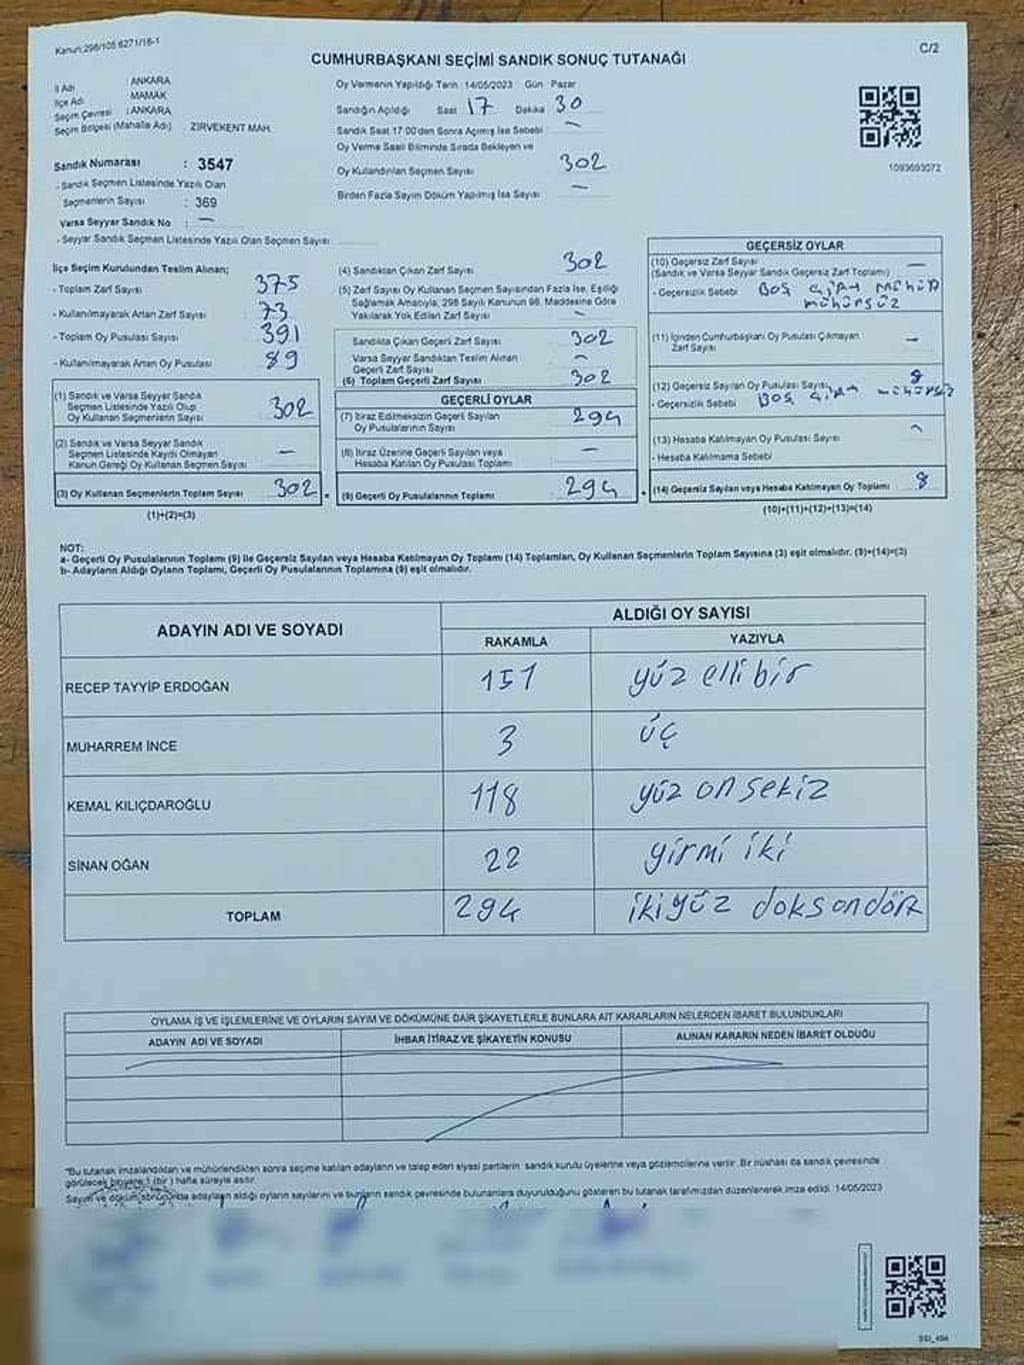 Kanun:298/105 6271/16-1
C/2
CUMHURBAŞKANI SEÇİMİ SANDIK SONUÇ TUTANAĞI
İl Adı ANKARA
İlçe Adı MAMAK
Seçim Çevresi : ANKARA
Seçim Bölgesi (Mahalle Adı) ZİRVEKENT MAH.
Sandık Numarası : 3547
- Sandık Seçmen Listesinde Yazılı Olan
Seçmenlerin Sayısı : 369
Varsa Seyyar Sandık No : —
- Seyyar Sandık Seçmen Listesinde Yazılı Olan Seçmen Sayısı
Oy Vermenin Yapıldığı Tarih : 14/05/2023 Gün Pazar
Sandığın Açıldığı Saat 17 Dakika 30
Sandık Saat 17:00'den Sonra Açılmış İse Sebebi —
Oy Verme Saati Bitiminde Sırada Bekleyen ve
Oy Kullandırılan Seçmen Sayısı 302
Birden Fazla Sayım Döküm Yapılmış İse Sayısı —
1093693072
İlçe Seçim Kurulundan Teslim Alınan;
- Toplam Zarf Sayısı 375
- Kullanılmayarak Artan Zarf Sayısı 73
- Toplam Oy Pusulası Sayısı 391
- Kullanılmayarak Artan Oy Pusulası 89
(1) Sandık ve Varsa Seyyar Sandık
Seçmen Listesinde Yazılı Olup
Oy Kullanan Seçmenlerin Sayısı 302
(2) Sandık ve Varsa Seyyar Sandık
Seçmen Listesinde Kaydı Olmayan
Kanun Gereği Oy Kullanan Seçmen Sayısı —
(3) Oy Kullanan Seçmenlerin Toplam Sayısı 302
(1)+(2)=(3)
(4) Sandıktan Çıkan Zarf Sayısı 302
(5) Zarf Sayısı Oy Kullanan Seçmen Sayısından Fazla İse, Eşitliği
Sağlamak Amacıyla, 298 Sayılı Kanunun 98. Maddesine Göre
Yakılarak Yok Edilen Zarf Sayısı —
Sandıkta Çıkan Geçerli Zarf Sayısı 302
Varsa Seyyar Sandıktan Teslim Alınan
Geçerli Zarf Sayısı —
(6) Toplam Geçerli Zarf Sayısı 302
GEÇERLİ OYLAR
(7) İtiraz Edilmeksizin Geçerli Sayılan
Oy Pusulalarının Sayısı 294
(8) İtiraz Üzerine Geçerli Sayılan veya
Hesaba Katılan Oy Pusulası Toplamı —
(9) Geçerli Oy Pusulalarının Toplamı 294
GEÇERSİZ OYLAR
(10) Geçersiz Zarf Sayısı —
(Sandık ve Varsa Seyyar Sandık Geçersiz Zarf Toplamı)
- Geçersizlik Sebebi BOŞ
mühürsüz
(11) İçinden Cumhurbaşkanı Oy Pusulası Çıkmayan
Zarf Sayısı —
(12) Geçersiz Sayılan Oy Pusulası Sayısı 8
- Geçersizlik Sebebi BOŞ mühürsüz
(13) Hesaba Katılmayan Oy Pusulası Sayısı —
- Hesaba Katılmama Sebebi
(14) Geçersiz Sayılan veya Hesaba Katılmayan Oy Toplamı 8
(10)+(11)+(12)+(13)=(14)
NOT:
a- Geçerli Oy Pusulalarının Toplamı (9) ile Geçersiz Sayılan veya Hesaba Katılmayan Oy Toplamı (14) Toplamları, Oy Kullanan Seçmenlerin Toplam Sayısına (3) eşit olmalıdır. (9)+(14)=(3)
b- Adayların Aldığı Oyların Toplamı, Geçerli Oy Pusulalarının Toplamına (9) eşit olmalıdır.
ADAYIN ADI VE SOYADI
ALDIĞI OY SAYISI
RAKAMLA YAZIYLA
RECEP TAYYİP ERDOĞAN 151 yüz elli bir
MUHARREM İNCE 3 üç
KEMAL KILIÇDAROĞLU 118 yüz on sekiz
SİNAN OĞAN 22 yirmi iki
TOPLAM 294 ikiyüz doksandört
OYLAMA İŞ VE İŞLEMLERİNE VE OYLARIN SAYIM VE DÖKÜMÜNE DAİR ŞİKAYETLERLE BUNLARA AİT KARARLARIN NELERDEN İBARET BULUNDUKLARI
ADAYIN ADI VE SOYADI İHBAR İTİRAZ VE ŞİKAYETİN KONUSU ALINAN KARARIN NEDEN İBARET OLDUĞU
"Bu tutanak imzalandıktan ve mühürlendikten sonra seçime katılan adayların ve talep eden siyasi partilerin sandık kurulu üyelerine veya gözlemcilerine verilir. Bir nüshası da sandık çevresinde
görülecek bir yere 1 (bir) hafta süreyle asılır.
Sayım ve döküm sonucunda adayların aldığı oyların sayılarını ve bunların sandık çevresinde bulunanlara duyurulduğunu gösteren bu tutanak tarafımızdan düzenlenerek imza edildi. 14/05/2023